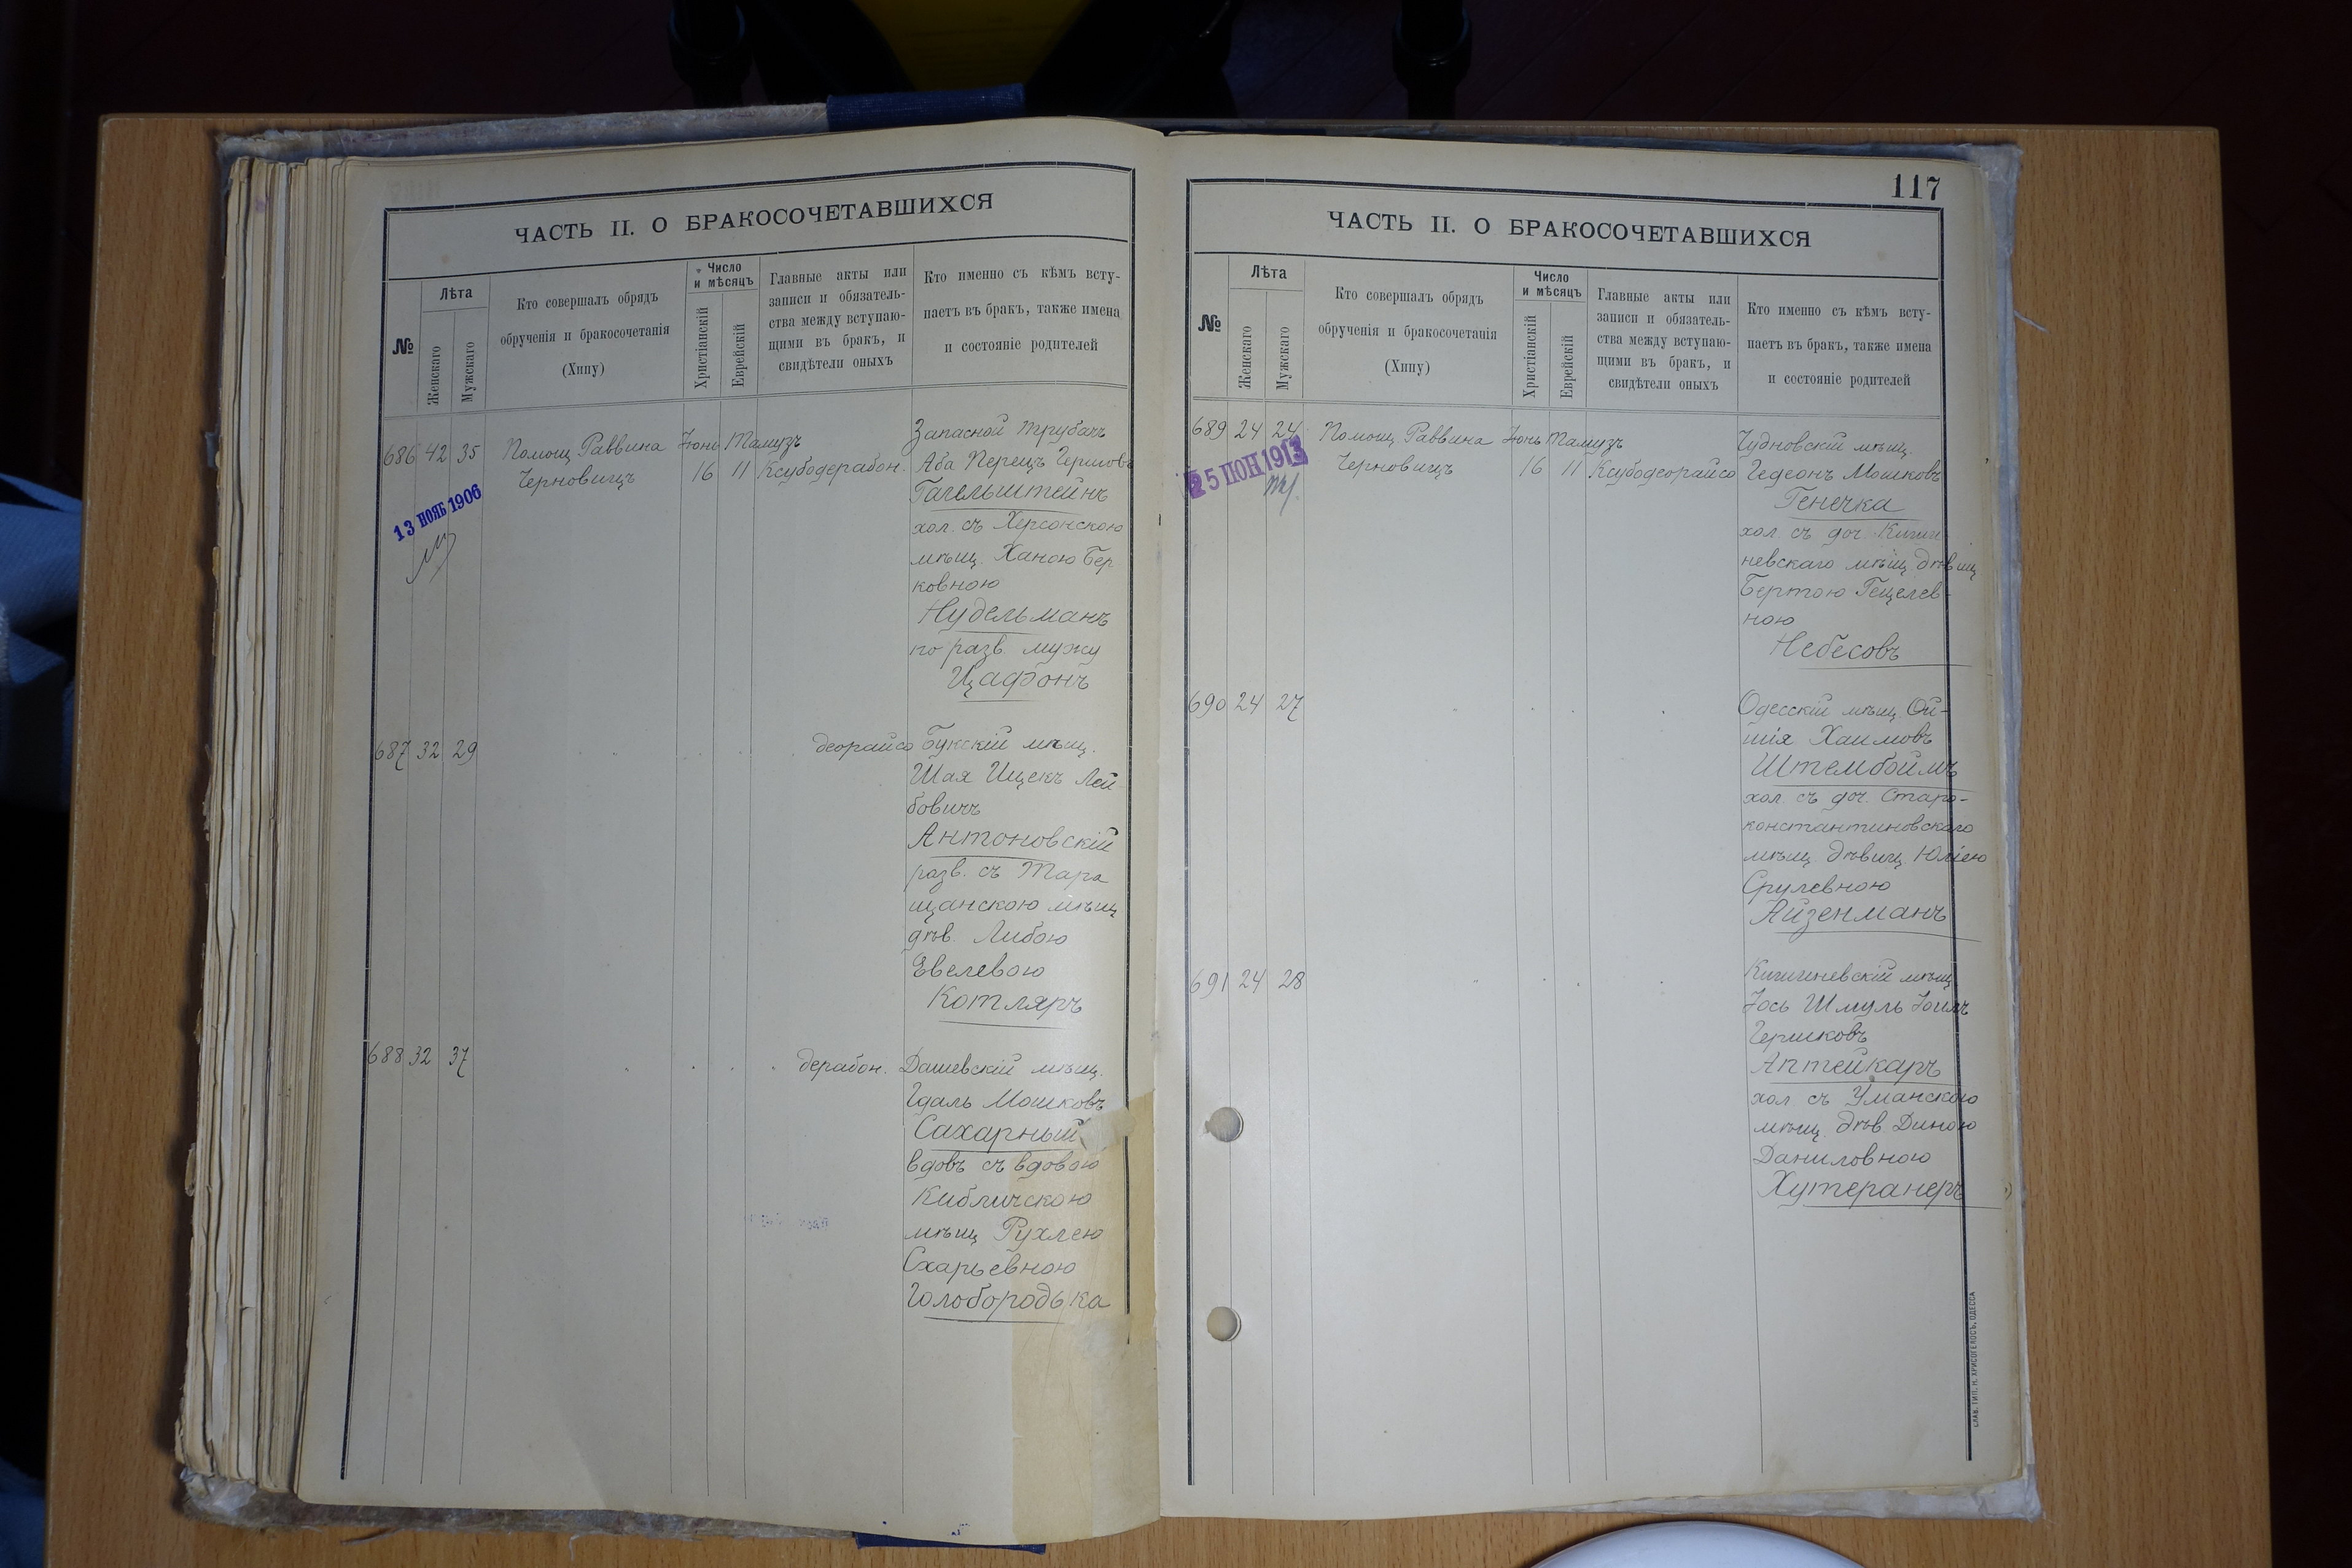 ЧАСТЬ II. О БРАКОСОЧЕТАВШИХСЯ
№
Лѣта
Женскаго
Мужскаго
Кто совершалъ обрядъ
обрученія и бракосочетанія
(Хипу)
Число
и мѣсяцъ
Христіанскій
Еврейскій
Главные акты или
записи и обязатель-
ства между вступаю-
щими въ бракъ, и
свидѣтели оныхъ
Кто именно съ кѣмъ всту-
паетъ въ бракъ, также имена
и состояніе родителей
686 42 35 Помощ Раввина Іюнь Тамузъ
Черновицъ 16 11 Ксубодерабон.
13 НОЯБ 1906
Запасной трубачъ
Аба Перецъ Гершовъ
Гагельштейнъ
хол. съ Херсонскою
мѣщ. Ханою Бер
ковною
Нудельманъ
по разв. мужу
Цафонъ
687 32 29 деорайсо
Букскій мѣщ.
Шая Ицекъ Лей
бовичъ
Антоновскій
разв. съ Тара
щанскою мѣщ
дѣв. Либою
Евелевою
Котляръ
688 32 37 дерабон.
Дашевскій мѣщ.
Гдаль Мошковъ
Сахарный
вдовъ съ вдовою
Кибличскою
мѣщ Рухлею
Схарьевною
Голобородька
117
ЧАСТЬ II. О БРАКОСОЧЕТАВШИХСЯ
№
Лѣта
Женскаго
Мужскаго
Кто совершалъ обрядъ
обрученія и бракосочетанія
(Хипу)
Число
и мѣсяцъ
Христіанскій
Еврейскій
Главные акты или
записи и обязатель-
ства между вступаю-
щими въ бракъ, и
свидѣтели оныхъ
Кто именно съ кѣмъ всту-
паетъ въ бракъ, также имена
и состояніе родителей
689 24 24 Помощ Раввина Іюнь Тамузъ
Черновицъ 16 11 Ксубодеорайсо
25 ІЮН 1913
Чудновскій мѣщ.
Гедеонъ Мошковъ
Генечка
хол. съ доч. Киши-
невскаго мѣщ дѣвиц
Бертою Гецелев-
ною
Небесовъ
690 24 27
Одесскій мѣщ. Ой-
шія Хаимовъ
Штембоймъ
хол. съ доч. Старо-
константиновскаго
мѣщ дѣвиц. Юліею
Срулевною
Айзенманъ
691 24 28
Кишиневскій мѣщ
Іось Шмуль Іоилъ
Гершковъ
Аптейкаръ
хол. съ Уманскою
мѣщ. дѣв Диною
Даниловною
Хутеранеръ
СЛАВ. ТИП. Н. ХРИСОГЕЛОСЪ, ОДЕССА